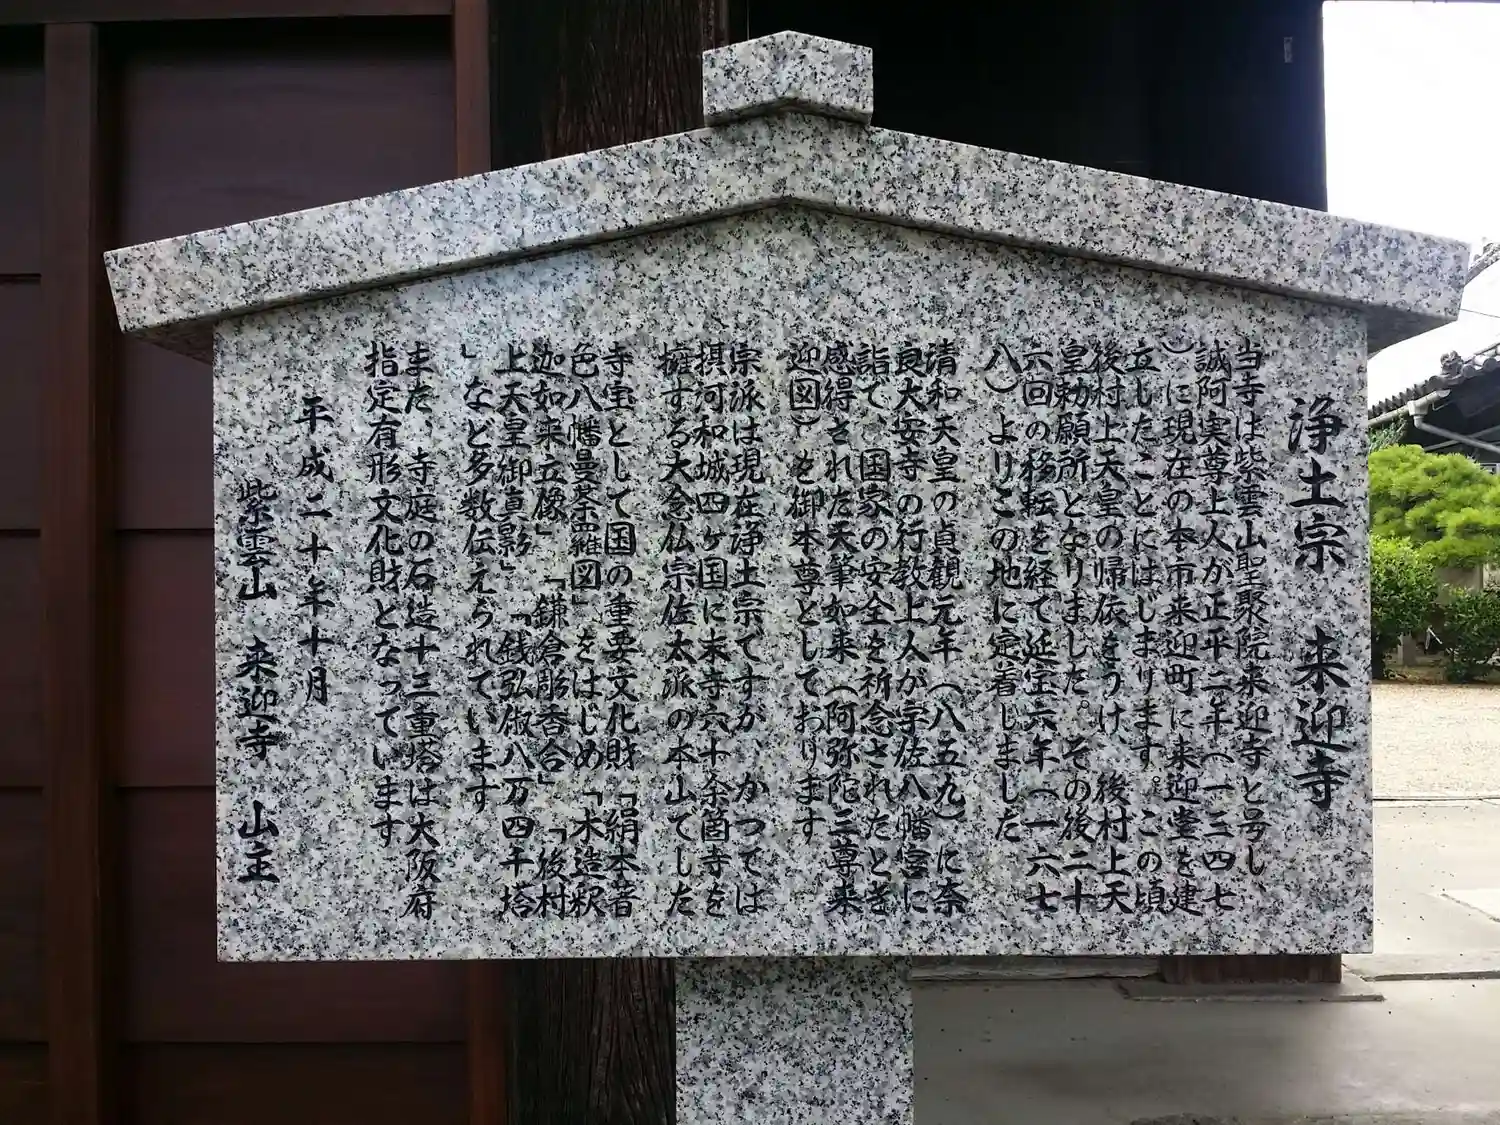 浄土宗 来迎寺
当寺は紫雲山聖聚院来迎寺と号し、
誠阿実尊上人が正平二年(一三四七
)に現在の本市来迎町に来迎堂を建
立したことにはじまります。この頃
後村上天皇の帰依をうけ、後村上天
皇勅願所となりました。その後二十
六回の移転を経て延宝六年(一六七
八)よりこの地に定着しました
清和天皇の貞観元年(八五九)に奈
良大安寺の行教上人が宇佐八幡宮に
詣で、国家の安全を祈念されたとき
感得された天筆如来(阿弥陀三尊来
迎図)を御本尊としております
宗派は現在浄土宗ですが、かつては
摂河和城四ヶ国に末寺六十余箇寺を
擁する大念仏宗佐太派の本山でした
寺宝として国の重要文化財「絹本着
色八幡曼荼羅図」をはじめ「木造釈
迦如来立像」「鎌倉彫香合」「後村
上天皇御真影」「銭弘俶八万四千塔
」など多数伝えられています
また、寺庭の石造十三重塔は大阪府
指定有形文化財となっています
平成二十年十月
紫雲山 来迎寺 山主